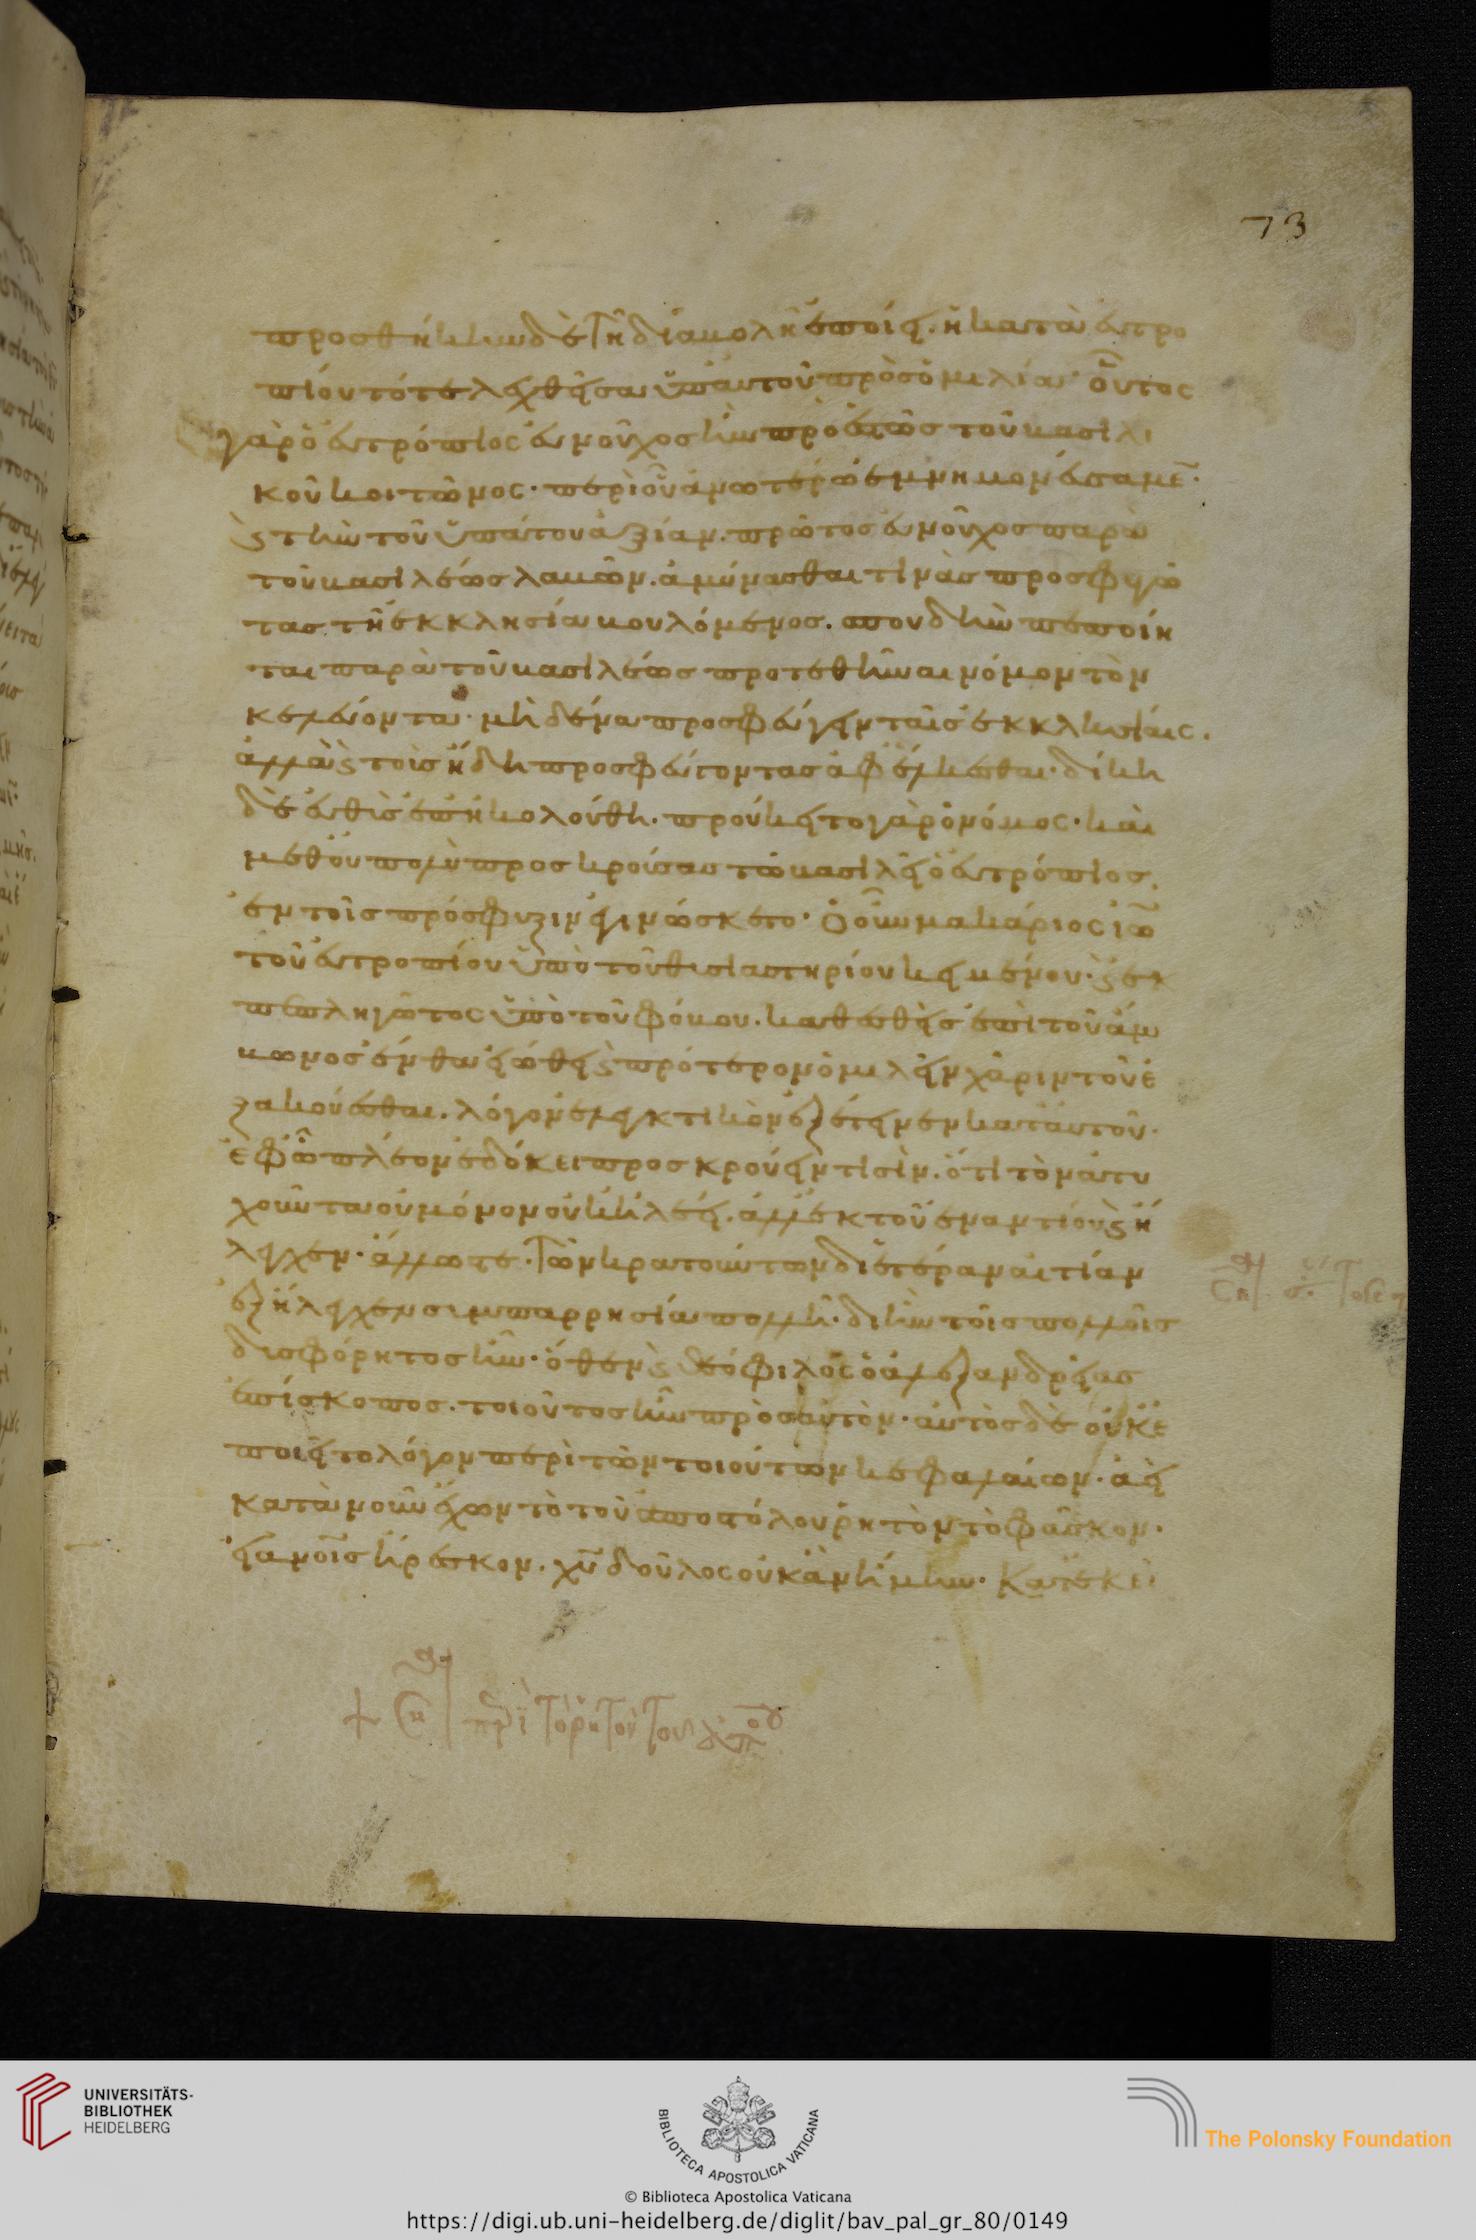 προσθήκην δὲ τῆ διαβολῆ ἐποίει. ἡ κατὰ εὐτρο
πίου τότε λεχθεῖσα ὑπ' αὐτοῦ πρὸς ὁμιλία· οὗτος
γὰρ ὁ εὐτρόπιος εὐνοῦχος ἦν προεστὼς τοῦ βασιλι
κοῦ κοιτῶνος· περὶ οὗ ἀνωτέρω ἐμνημονεύσαμε̄·
ϛ τὴν τοῦ ὑπάτου ἀξίαν. πρῶτος εὐνοῦχος παρὰ
τοῦ βασιλέως λαβῶν. ἀμύνασθαι τινὰς προσφυγό
τας τῆ ἐκκλησία βουλόμενος. σπουδὴν πεποίη
ται παρὰ τοῦ βασιλέως προτεθῆναι νόμον τὸν
κελεύοντα· μὴδένα προσφεύγειν ταῖς ἐκκλησίαις.
ἀλλὰ ϛ τοῖς ἤδη προσφεύγοντας ἀφέλκεσθαι. δίκη
δὲ εὐθὺς ἐπηκολούθη. προύκειτο γὰρ ὁ νόμος· καὶ
μεθ' οὐ πολὺ προσκρούσας τῶ βασιλεῖ ὁ εὐτρόπιος.
ἐν τοῖς πρόσφυξιν ἐγινώσκετο· ὁ οὖν μακάριος ἰω̄
τοῦ εὐτροπίου ὑπὸ τοῦ θυσιαστηρίου κειμένου· ϛ ἐκ
πεπληγῶτος ὑπὸ τοῦ φόβου. καθεσθεὶς ἐπὶ τοῦ ἄμ
βωνος ἔνθα εἰώθει ϛ πρότερον ὁμιλεῖν χάριν τοῦ ἐ
ξακούεσθαι. λόγον ἐλεγκτικὸν ἐξέτεινεν κατ' αὐτοῦ·
ἐφ' ὧ πλέον ἐδόκει προσκρούειν τισὶν. ὅτι τὸν ἀτυ
χοῦντα οὐ μόνον οὐκ ἠλέει. ἀλλ' ἐκ τοῦ ἐναντίου ϛ ἤ
λεγχεν· ἄλλωτε. τῶν κρατούντων δι' ἑτέραν αἰτίαν
ἐξήλεγχεν συν παρρησία πολλῆ· δι' ἣν τοῖς πολλοῖς
δυσφόρητος ἦν· ὅθεν ϛ θεόφιλος ὁ ἀλεξανδρείας
ἐπίσκοπος. τοιοῦτος ἦν πρὸς αὐτὸν· αὐτὸς δὲ οὐκ ἐ
ποιεῖτο λόγον περὶ τῶν τοιούτων κεφαλαίων· ἀεὶ
κατὰ νοῦν ἔχων τὸ τοῦ ἀποστόλου ῥητὸν τὸ φᾶσκον·
εἰ ἀνοῖς ἤρεσκον. χῡ δοῦλος οὐκ ἂν ἤμην· κατεσκεύ
73
+ ση περὶ τὸ ῥητὸν τοῦ ἀπου
UNIVERSITÄTS-
BIBLIOTHEK
HEIDELBERG
BIBLIOTECA APOSTOLICA VATICANA
The Polonsky Foundation
© Biblioteca Apostolica Vaticana
https://digi.ub.uni-heidelberg.de/diglit/bav_pal_gr_80/0149